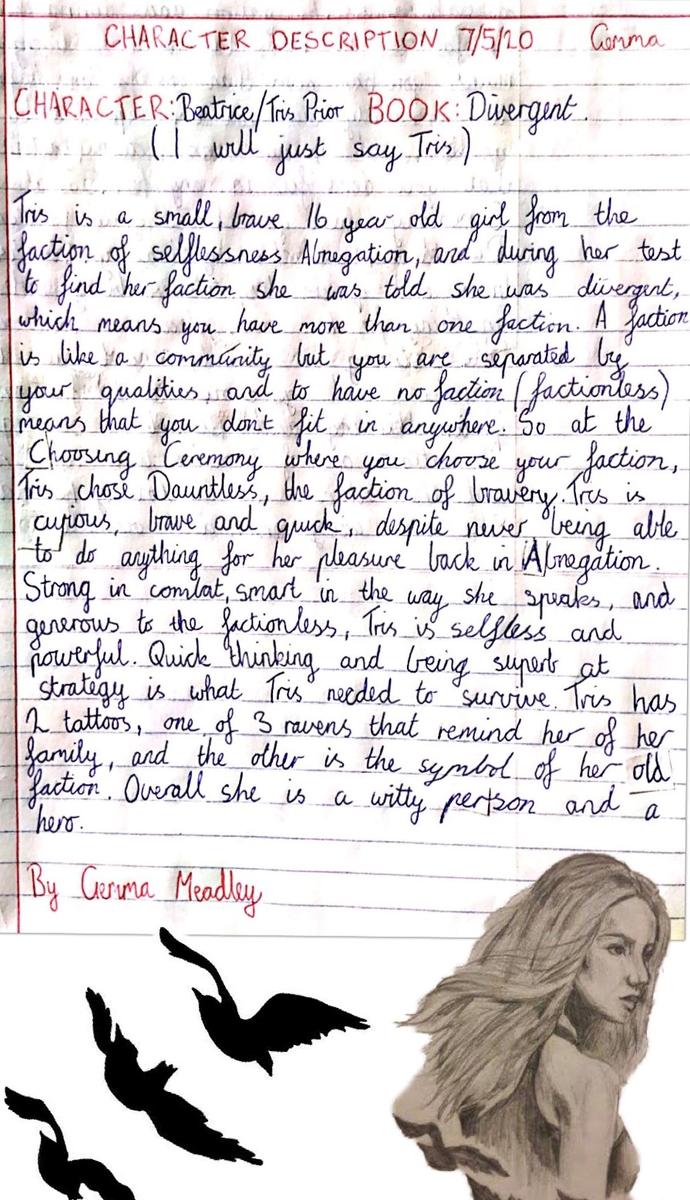 CHARACTER DESCRIPTION 7/5/20 Gemma
CHARACTER: Beatrice/Tris Prior BOOK: Divergent.
(I will just say Tris)
Tris is a small, brave 16 year old girl from the
faction of selflessness Abnegation, and during her test
to find her faction she was told she was divergent,
which means you have more than one faction. A faction
is like a community but you are separated by
your qualities, and to have no faction (factionless)
means that you don't fit in anywhere. So at the
Choosing Ceremony where you choose your faction,
Tris chose Dauntless, the faction of bravery. Tris is
curious, brave and quick, despite never being able
to do anything for her pleasure back in Abnegation.
Strong in combat, smart in the way she speaks, and
generous to the factionless, Tris is selfless and
powerful. Quick thinking and being superb at
strategy is what Tris needed to survive. Tris has
2 tattoos, one of 3 ravens that remind her of her
family, and the other is the symbol of her old
faction. Overall she is a witty person and a
hero.
By Gemma Meadley